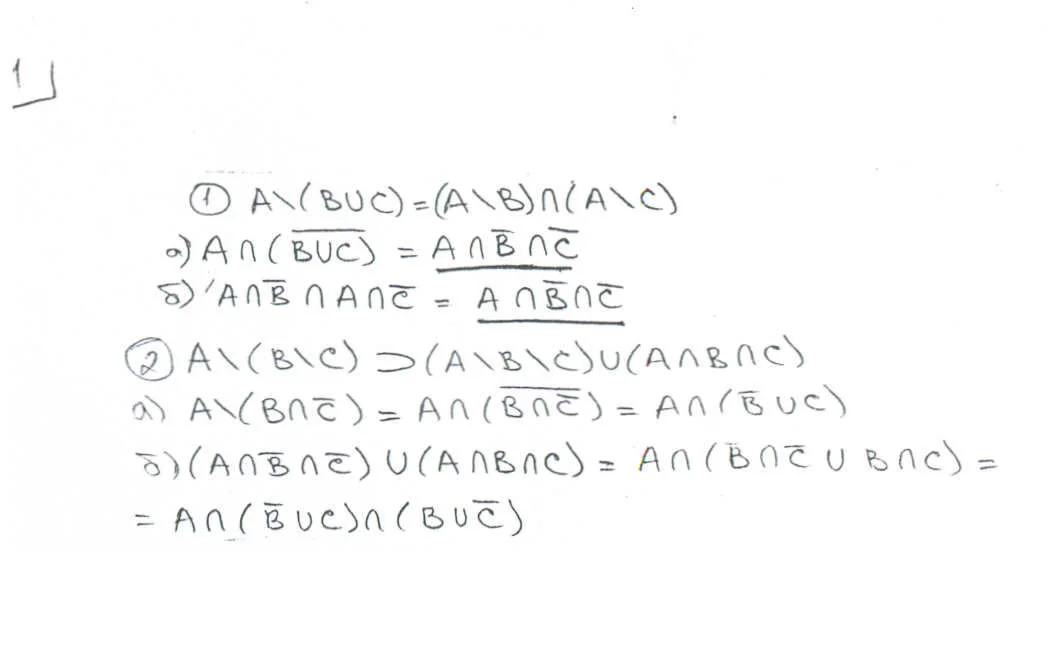 1
① A\(B∪C)=(A\B)∩(A\C)
а) A∩(B̅∪̅C̅) = A∩B̅∩C̅
б) A∩B̅∩A∩C̅ = A∩B̅∩C̅
② A\(B\C) ⊃ (A\B\C)∪(A∩B∩C)
а) A\(B∩C̅) = A∩(B̅∩̅C̅̅) = A∩(B̅∪C)
б) (A∩B̅∩C̅)∪(A∩B∩C) = A∩(B̅∩C̅∪B∩C) =
= A∩(B̅∪C)∩(B∪C̅)